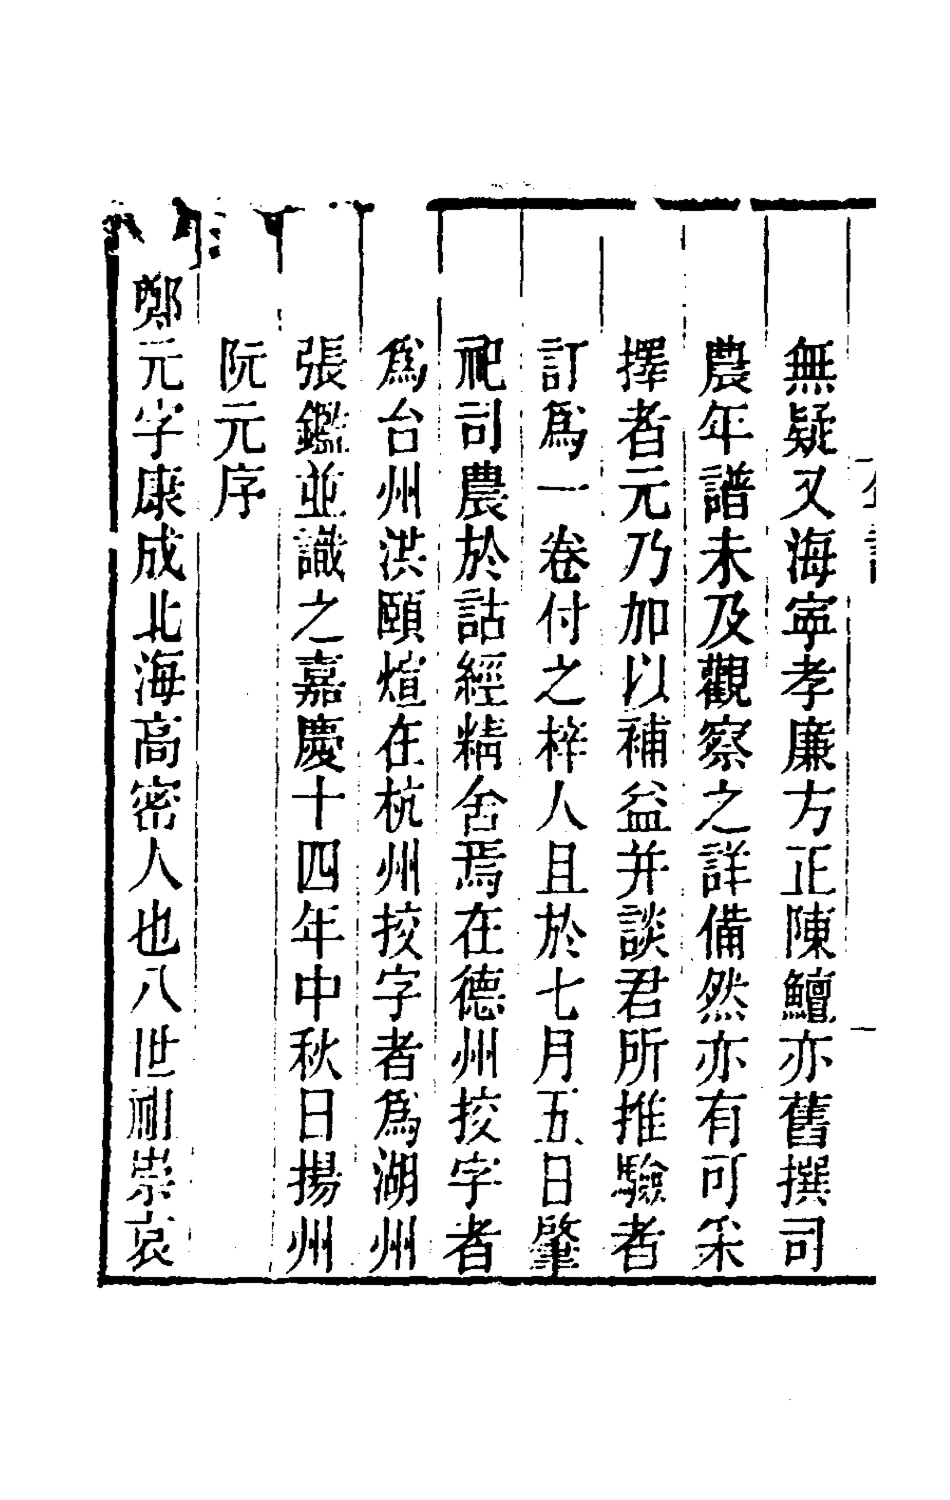 無疑又海寧孝廉方正陳鱣亦舊撰司
農年譜未及觀察之詳備然亦有可采
擇者元乃加以補益并談君所推驗者
訂爲一卷付之梓人且於七月五日肇
祀司農於詁經精舍焉在德州挍字者
爲台州洪頤煊在杭州挍字者爲湖州
張鑑並識之嘉慶十四年中秋日揚州
阮元序
鄭元字康成北海高密人也八世祖崇哀